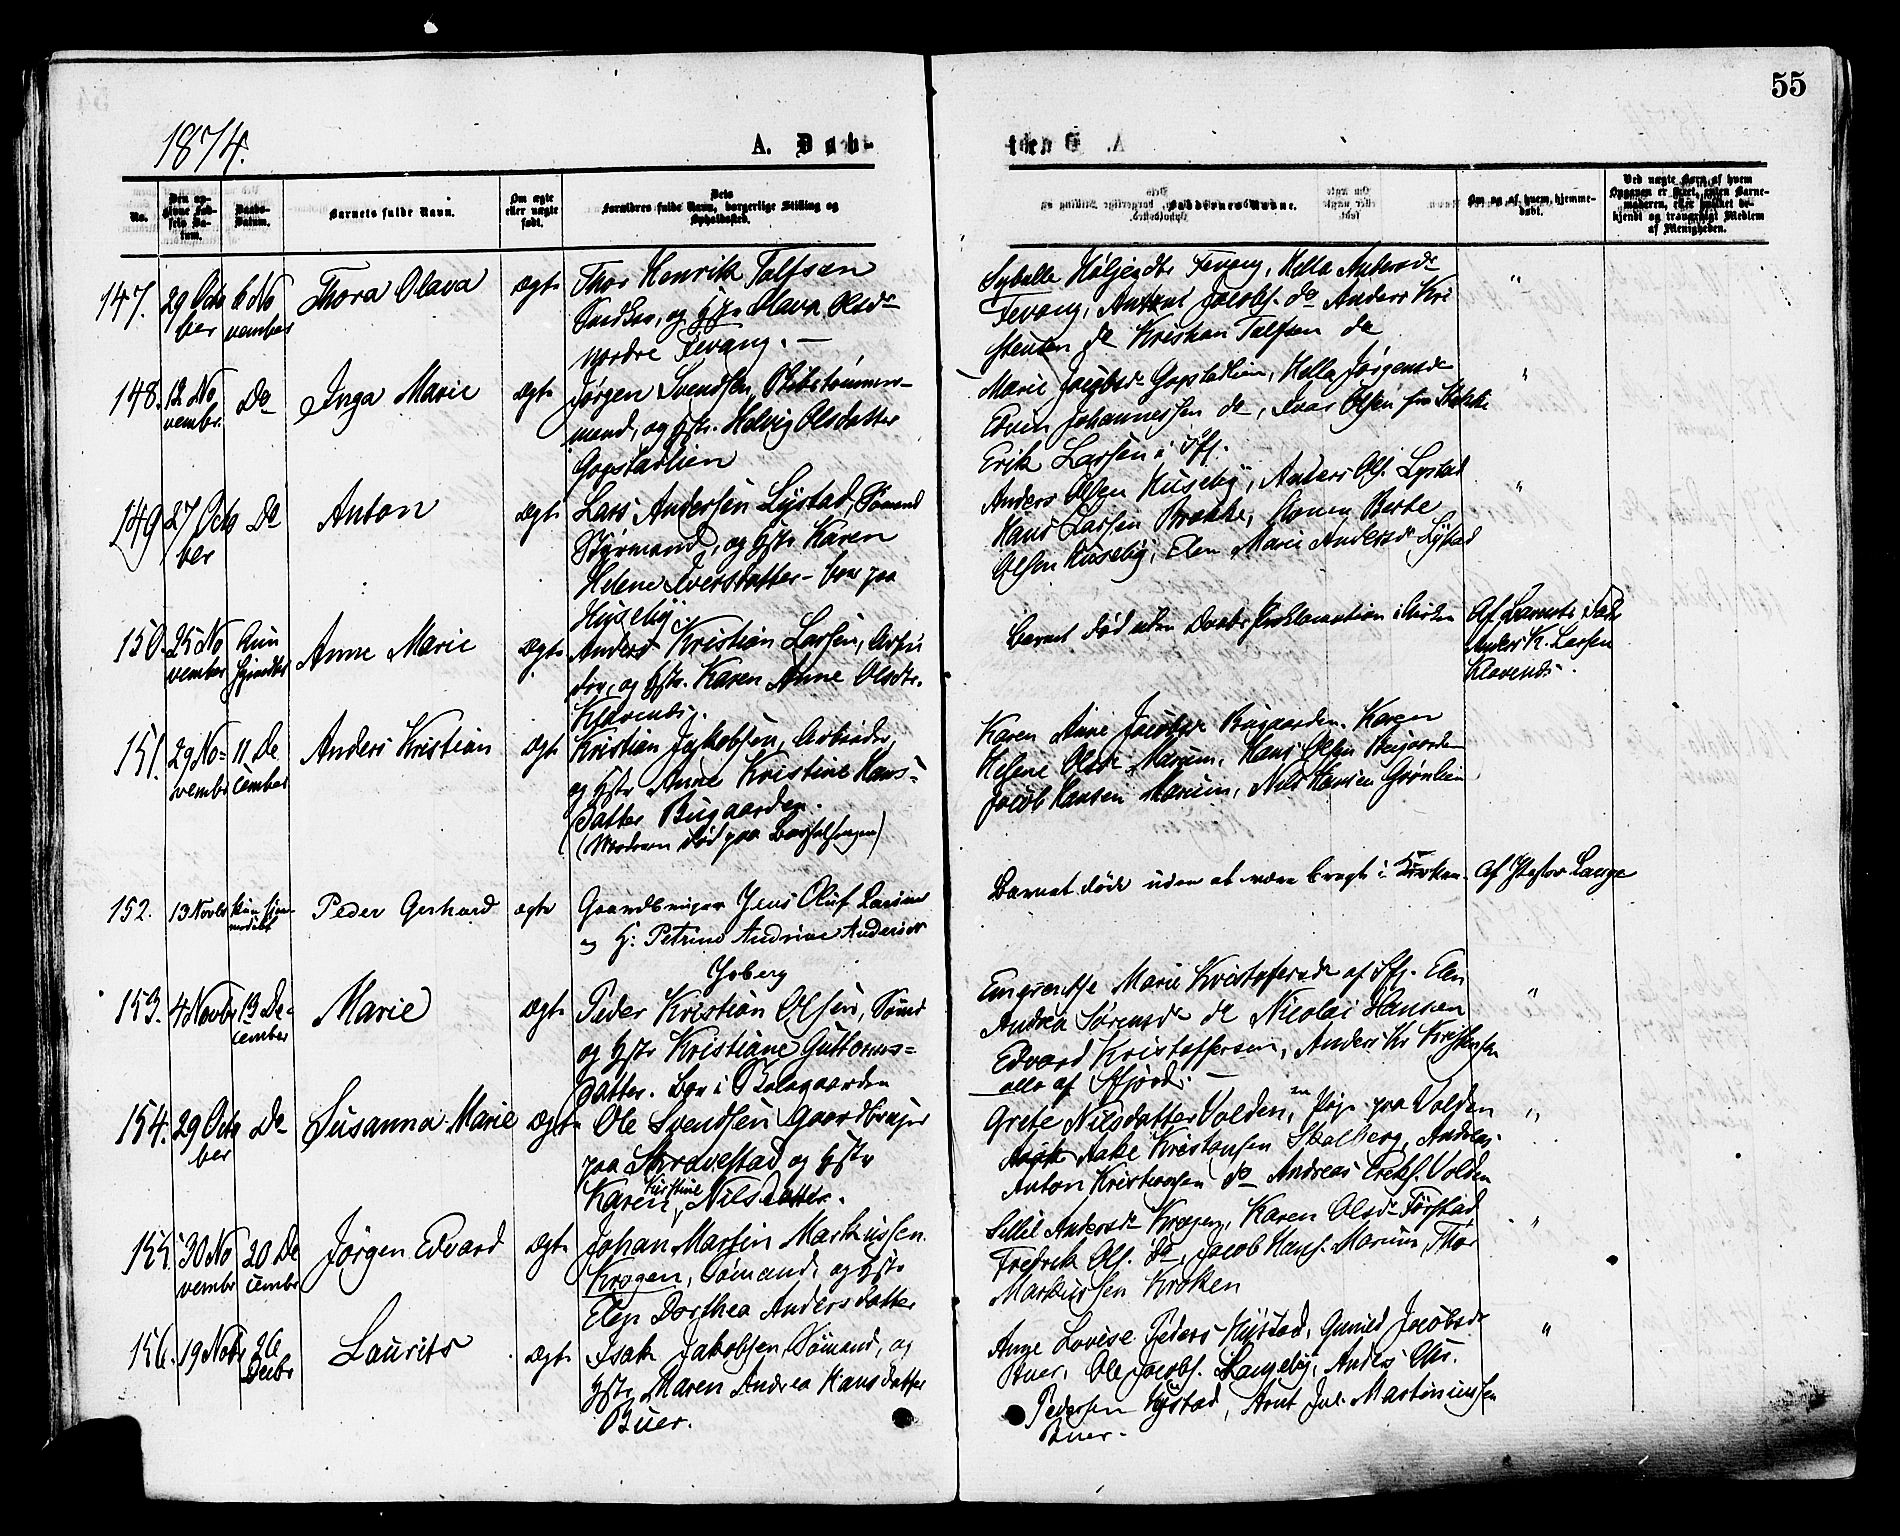 55
1874.
A. Døb-
No.
Den op-
givne Fød-
sels Da-
tum.
Daabs-
Datum.
Barnets fulde Navn.
Om ægte
eller uægte
født.
Dets
Forældres fulde Navn, borgerlige Stilling og
Opholdssted.
Faddernes Navne.
Om og af hvem hjemme-
døbt.
Ved uægte Børn af hvem
Opgaven er skeet, enten Barne-
moderen, eller hvilket be-
kjendt og troværdigt Medlem
af Menigheden.
147. 29 Octo
ber
6 No
vember
Thora Olava
ægte
Thor Henrik Tolfsen
og Hstr Olava Olsdr
nordre Fevang. —
Fevang, Hella Andersdr
Fevang, Jacobs. do Anders Kri
stensen do Kristian Tolfsen do
"
148. 12 No
vembr.
Do
Inga Marie
ægte
Jørgen Svendsen, Skibstømmer-
mand, og Hstr. Helvig Olsdatter
Gogstadlien
Marie Jacobsdr Gogstadlien, Hella Jørgensdr
Edvin Johannessen do, Ivar Olsen fra Stokke
Erik Larsen i Sfj.
"
149 27 Octo
ber
Do
Anton
ægte
Lars Andersen Lystad, Sømand
Styrmand, og Hstr Karen
Helene Iversdatter - boer paa
Huseby
Anders Olsen Huseby, Anders Ols. Lystad
Hans Larsen Brække, Konen Berte
Olsen Huseby, Elen Marie Andersdr Lystad
"
150. 25 No
vember
Kun
hjemdbt
Anne Marie
ægte
Anders Kristian Larsen, Arbei
der, og Hstr. Karen Anne Olsdtr.
Klavenæs.
Barnet død uden Daabs Proklamation i Kirken
Af Barnets Fader
Anders K. Larsen
Klavenæs.
151. 29 No-
vembr
11 De
cember
Anders Kristian
ægte
Kristian Jakobsen, Arbeider,
og Hstr Anne Kristine Hans-
datter Bugaarden.
(Moderen død paa Barselsengen)
Karen Anne Jacobsdr Bugaarden, Karen
Helene Olsdr Marum, Hans Olsen Bugaarden
Jacob Hansen Marum, Nils Hansen Grønlien
152. 13 Novbr
kun hjem-
medøbt
Peder Gerhard
ægte
Gaardbruger Jens Oluf Larsen
og H: Petrine Andrine Andersdr
Barnet døde uden at være bragt i Kirken.
Af Lange
153. 4 Novbr
13 De-
cember
Marie
ægte
Peder Kristian Olsen, Sømd
og Hstr Kristiane Guttorms-
datter. Boer i
Marie Kristofersdr af Sfj. Elen
Andrea Sørensdr do Nicolai Hansen
Edvard Kristoffersen, Anders Kr Kristensen
alle af Sfjord. —
"
154. 29 Octo
ber
Do
Susanna Marie
ægte
Ole Svendsen Gaardbruger
paa Skravestad og Hstr
Karen Kirstine Nilsdatter.
Grete Nilsdatter Volden, Pige paa Volden
Aake Kristensen Stalberg, Andreas
Anton Kristensen do Andreas Eriks. Volden
"
155. 30 No
vembr
20 De
cembr
Jørgen Edvard
ægte
Johan Martin Markussen
Krogen, Sømand, og Hstr
Elen Dorthea Andersdatter
Andersdr Krogen, Karen Olsdr
Fredrik Ols. do, Jacob Hans. Marum, Thor
Markussen Kroken
"
156. 19 Novbr
26
Decbr
Laurits
ægte
Isak Jakobsen, Sømand, og
Hstr Maren Andrea Hansdatter
Buer.
Anne Lovise Peders Nystad, Gunild Jacobsdr
Buer, Ole Jacobs. Langeby, Anders Chr.
Pedersen Nystad, Arnt Jul. Martiniussen
Buer.
"